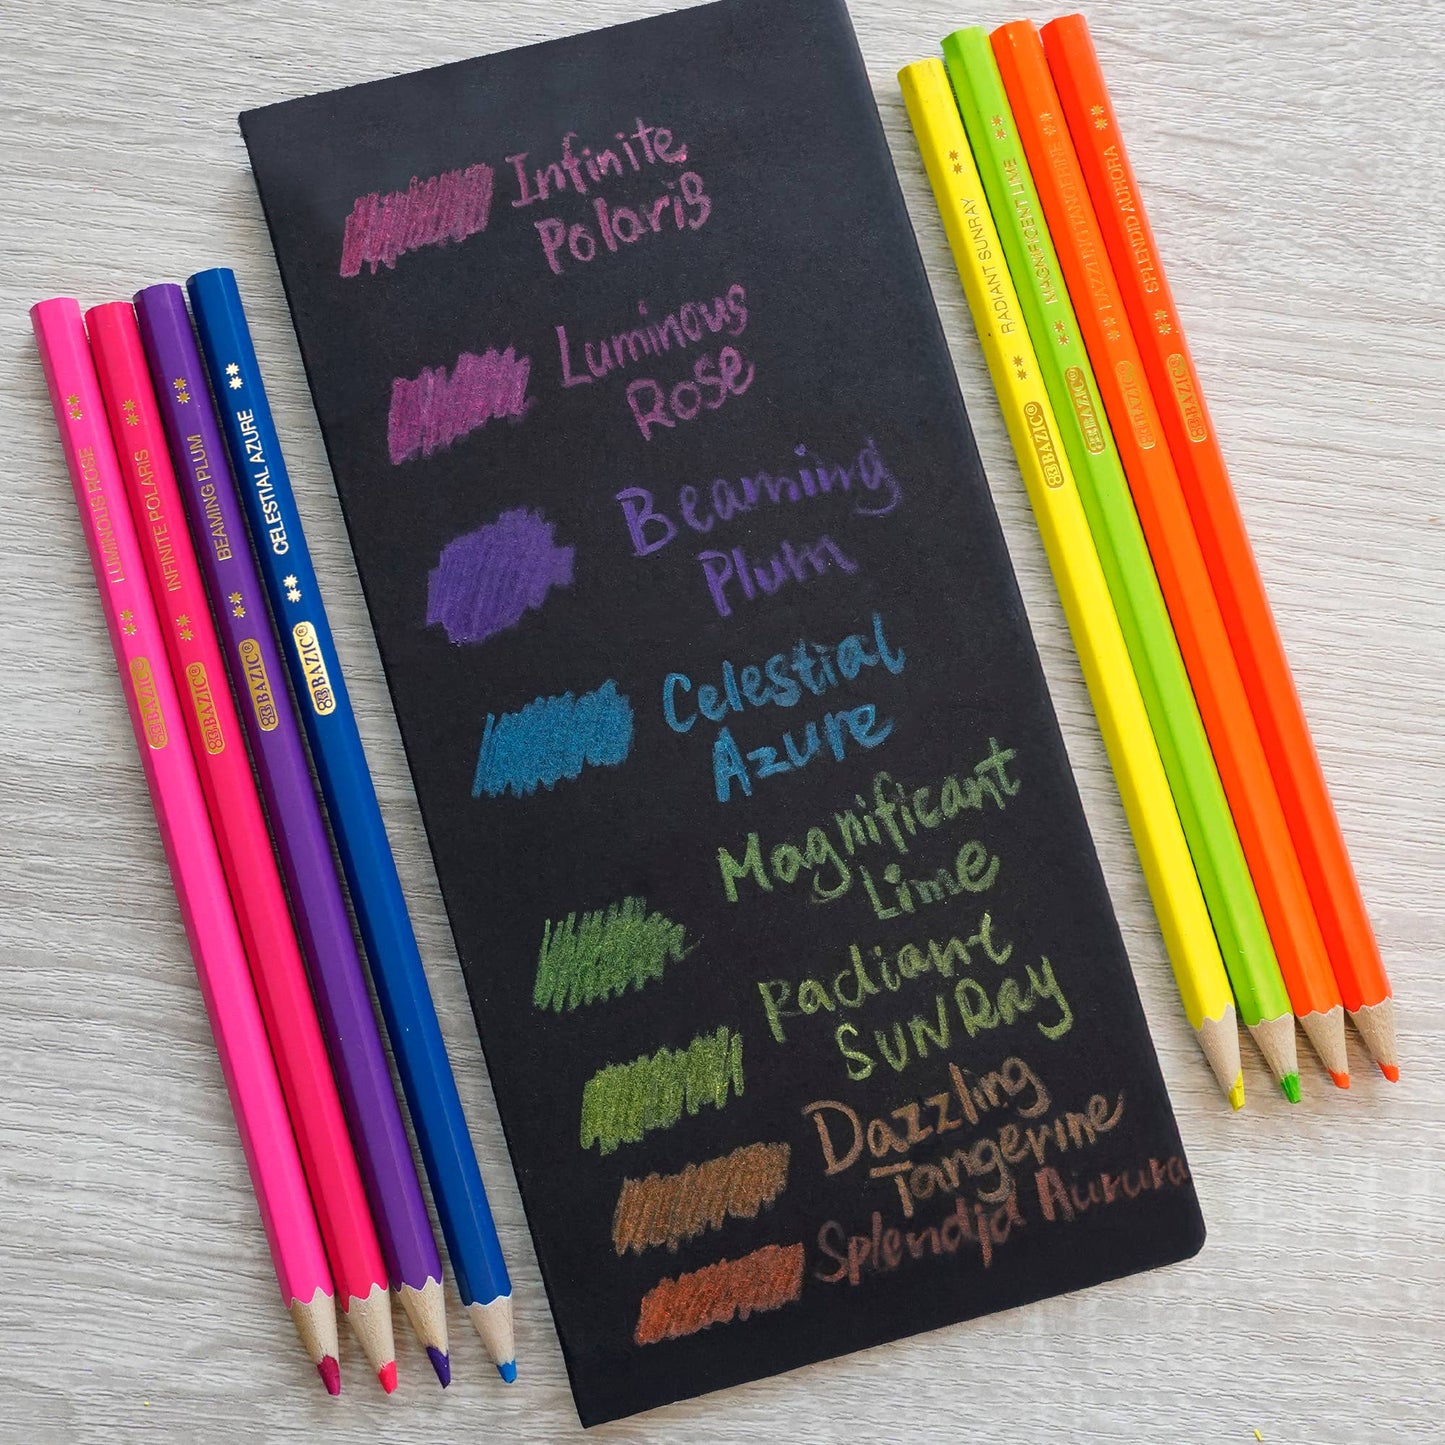 Infinite
Polaris
Luminous
Rose
Beaming
Plum
Celestial
Azure
Magnificant
Lime
Radiant
SUNRay
Dazzling
Tangerine
Splendid Aurura
LUMINOUS ROSE
BAZIC®
INFINITE POLARIS
BAZIC®
BEAMING PLUM
BAZIC®
CELESTIAL AZURE
BAZIC®
RADIANT SUNRAY
BAZIC®
MAGNIFICENT LIME
BAZIC®
DAZZLING TANGERINE
BAZIC®
SPLENDID AURORA
BAZIC®